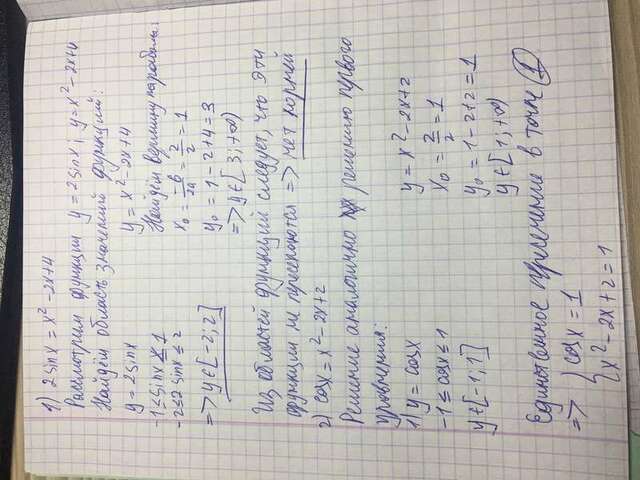 1) 2sinx = x² - 2x+4
Рассмотрим функции y = 2sinx; y = x² - 2x+4
Найдём область значений функций:
y = 2sinx
-1 ≤ sinx ≤ 1
-2 ≤ 2sinx ≤ 2
=> y ∈ [-2; 2]
y = x² - 2x+4
Найдём вершину параболы:
x₀ = -b/2a = 2/2 = 1
y₀ = 1 - 2 + 4 = 3
=> y ∈ [3; +∞)
Из областей функций следует, что эти
функции не пересекаются => нет корней
2) cosx = x² - 2x+2
Решение аналогично решению первого
уравнения:
1) y = cosx
-1 ≤ cosx ≤ 1
y ∈ [-1; 1]
y = x² - 2x+2
x₀ = 2/2 = 1
y₀ = 1 - 2+2 = 1
y ∈ [1; +∞)
Единственное пересечение в точке 1
=> { cosx = 1
{ x² - 2x + 2 = 1